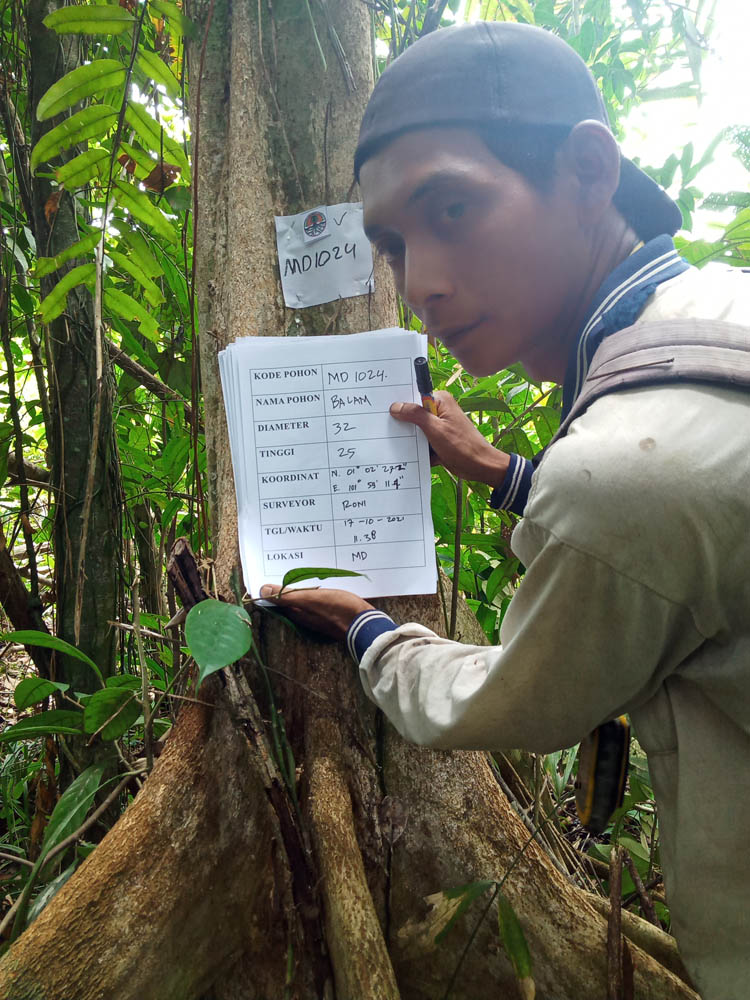 MD1024
KODE POHON MD 1024.
NAMA POHON BALAM
DIAMETER 32
TINGGI 25
KOORDINAT N. 01° 02' 27.2"
E. 101° 53' 11.4"
SURVEYOR RONI
TGL/WAKTU 17-10-2021
11.38
LOKASI MD